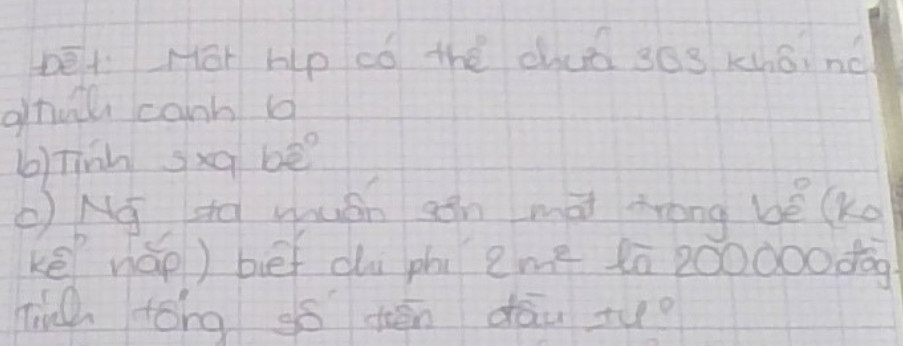 bết. Một hlp có thể chứa 363 khối nc
a) Tính cạnh b
b) Tính sxq bể
c) Ng ta muốn sơn mặt trong bể (ko
kể nắp) biết chi phí 2m² là 200000 đồng.
Tính tổng số tiền đầu tư?